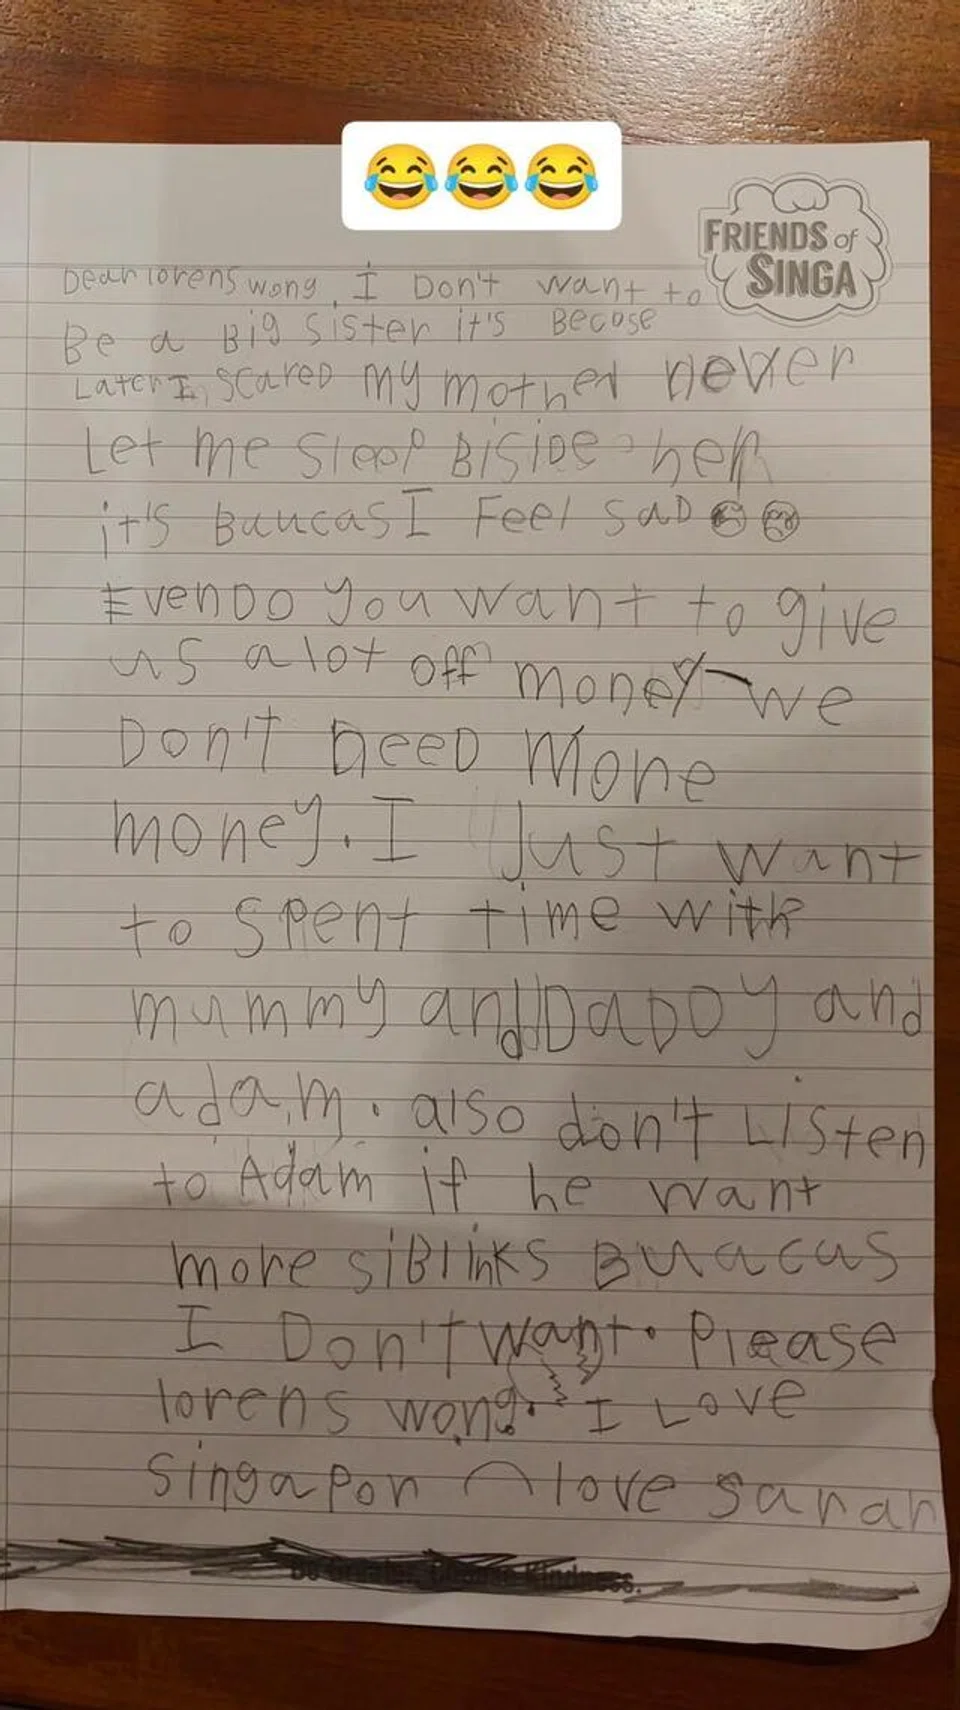 FRIENDS of
SINGA
Dear lorens wong, I Don't want to
Be a Big sister it's Becose
Later I, scared my mother never
Let me sleep Biside her
it's Baucas I Feel saD
EvenDo you want to give
us a lot off money we
Don't neeD More
money. I Just want
to spent time with
mummy and DaDDy and
adam. also don't Listen
to Adam if he want
more siBlinks Buacas
I Don't want. Please
lorens wong. I Love
singapor love sarah
Be Greater, Kindness.